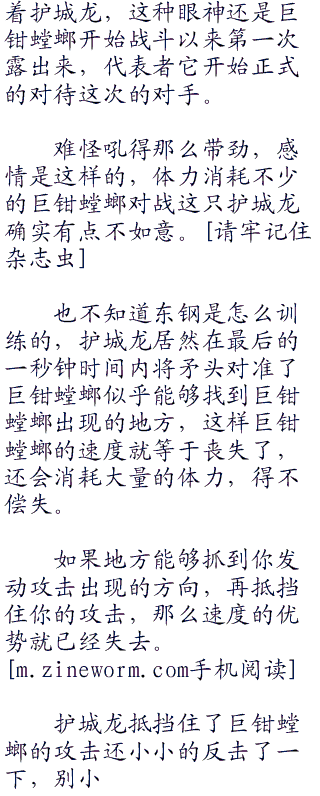 着护城龙，这种眼神还是巨
钳螳螂开始战斗以来第一次
露出来，代表者它开始正式
的对待这次的对手。
难怪吼得那么带劲，感
情是这样的，体力消耗不少
的巨钳螳螂对战这只护城龙
确实有点不如意。[请牢记住
杂志虫]
也不知道东钢是怎么训
练的，护城龙居然在最后的
一秒钟时间内将矛头对准了
巨钳螳螂似乎能够找到巨钳
螳螂出现的地方，这样巨钳
螳螂的速度就等于丧失了，
还会消耗大量的体力，得不
偿失。
如果地方能够抓到你发
动攻击出现的方向，再抵挡
住你的攻击，那么速度的优
势就已经失去。
[m.zineworm.com手机阅读]
护城龙抵挡住了巨钳螳
螂的攻击还小小的反击了一
下，别小